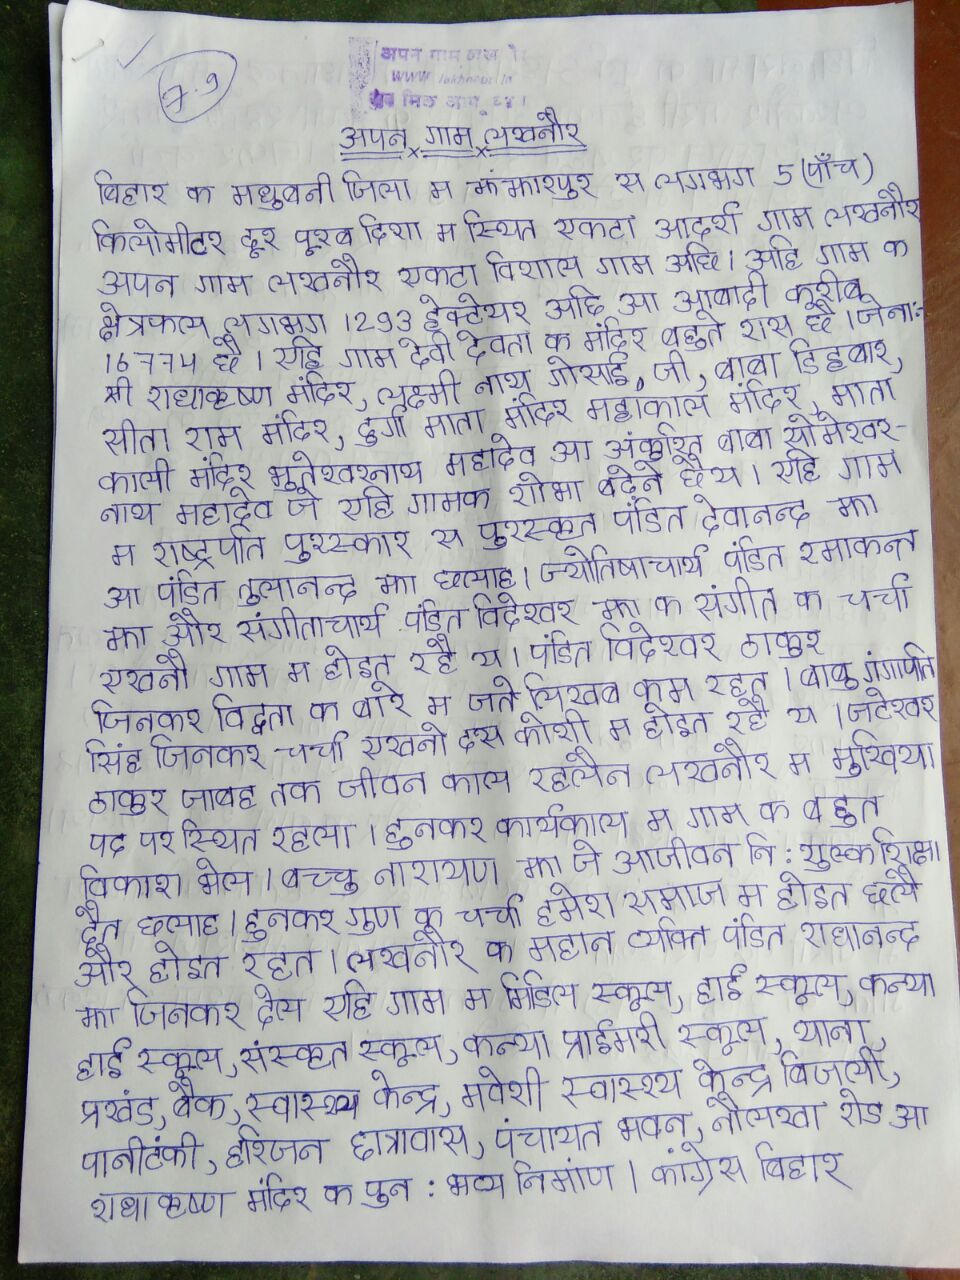 7.9
अपन गाम लखनौर
www.lakhnaur.in
अपन गाम लखनौर
बिहार क मधुबनी जिला म झंझारपुर स लगभग 5 (पाँच)
किलोमीटर दूर पूरब दिशा म स्थित एकटा आदर्श गाम लखनौर
अपन गाम लखनौर एकटा विशाल गाम अछि। अहि गाम क
क्षेत्रफल लगभग 1293 हेक्टेयर अछि आ आबादी करीब
16774 छै। एहि गाम देवी देवता क मंदिर बहुते रास छै। जेना:-
श्री राधाकृष्ण मंदिर, लक्ष्मी नाथ गोसाईं जी, बाबा डिहबार,
सीता राम मंदिर, दुर्गा माता मंदिर महाकाल मंदिर, माता
काली मंदिर भुतेश्वरनाथ महादेव आ अंकुरित बाबा सोमेश्वर-
नाथ महादेव जे एहि गामक शोभा बढ़ेने छै य। एहि गाम
म राष्ट्रपति पुरस्कार स पुरस्कृत पंडित देवानन्द झा
आ पंडित तुलानन्द झा छलाह। ज्योतिषाचार्य पंडित रमाकन्त
झा और संगीताचार्य पंडित विदेश्वर झा क संगीत क चर्चा
एखनौ गाम म होइत रहै य। पंडित विदेश्वर ठाकुर
जिनकर विद्वता क बारे म जते लिखब कम रहत। बाबु गंगापति
सिंह जिनकर चर्चा एखनो दस कोशी म होइत रहै य। जटेश्वर
ठाकुर जाबह तक जीवन काल रहलैन लखनौर म मुखिया
पद पर स्थित रहला। हुनकर कार्यकाल म गाम क बहुत
विकाश भेल। बच्चु नारायण झा जे आजीवन नि:शुल्क शिक्षा
दैत छलाह। हुनकर गुण क चर्चा हमेशा समाज म होइत छलै
और होइत रहत। लखनौर क महान व्यक्ति पंडित राधानन्द
झा जिनकर देल एहि गाम म मिडिल स्कूल, हाई स्कूल, कन्या
हाई स्कूल, संस्कृत स्कूल, कन्या प्राईमरी स्कूल, थाना,
प्रखंड, बैंक, स्वास्थ्य केन्द्र, मवेशी स्वास्थ्य केन्द्र बिजली,
पानीटंकी, हरिजन छात्रावास, पंचायत भवन, नौलखा रोड आ
राधाकृष्ण मंदिर क पुन: भव्य निर्माण। कांग्रेस बिहार